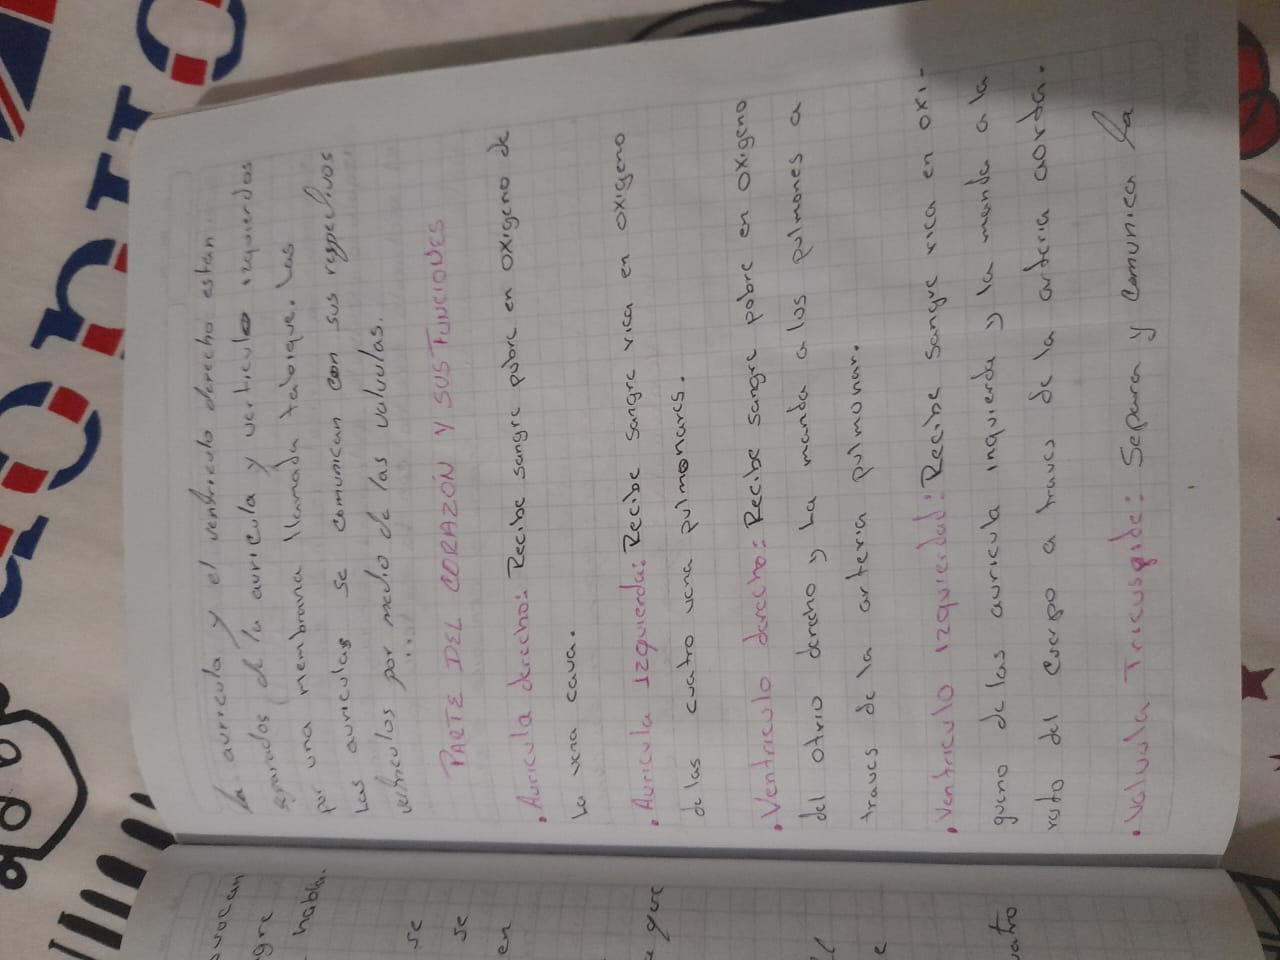 La auricula y el ventriculo derecho estan
separados de la auricula y verticulo izquierdos
por una membrana llamada tabique. Las
Las auriculas se comunican con sus respectivos
vetriculos por medio de las valvulas.
PARTE DEL CORAZÓN Y SUS FUNCIONES
• Auricula derecho: Recibe sangre pobre en oxigeno de
la vena cava.
• Auricula izquierda: Recibe sangre rica en oxigeno
de las cuatro vena pulmonares.
• Ventriculo derecho: Recibe sangre pobre en oxigeno
del otrio derecho y La manda a los pulmones a
traves de la arteria pulmonar.
• Ventriculo izquierdad: Recibe sangre rica en oxi-
gueno de las auricula inquierda y la manda a la
resto del cuerpo a traves de la arteria aorta.
• Valvula Tricuspide: Separa y comunica la
Norma
se
se
en
que
el
e
habla.
CIONI